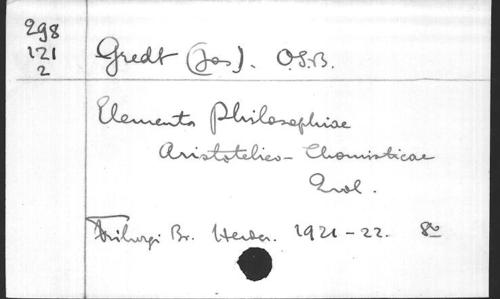 298
121
2
Gredt (Jos). O.S.B.
Elementa Philosophiae
Aristotelico-Thomisticae
2 vol.
Friburgi Br. Herder. 1921-22. 8º